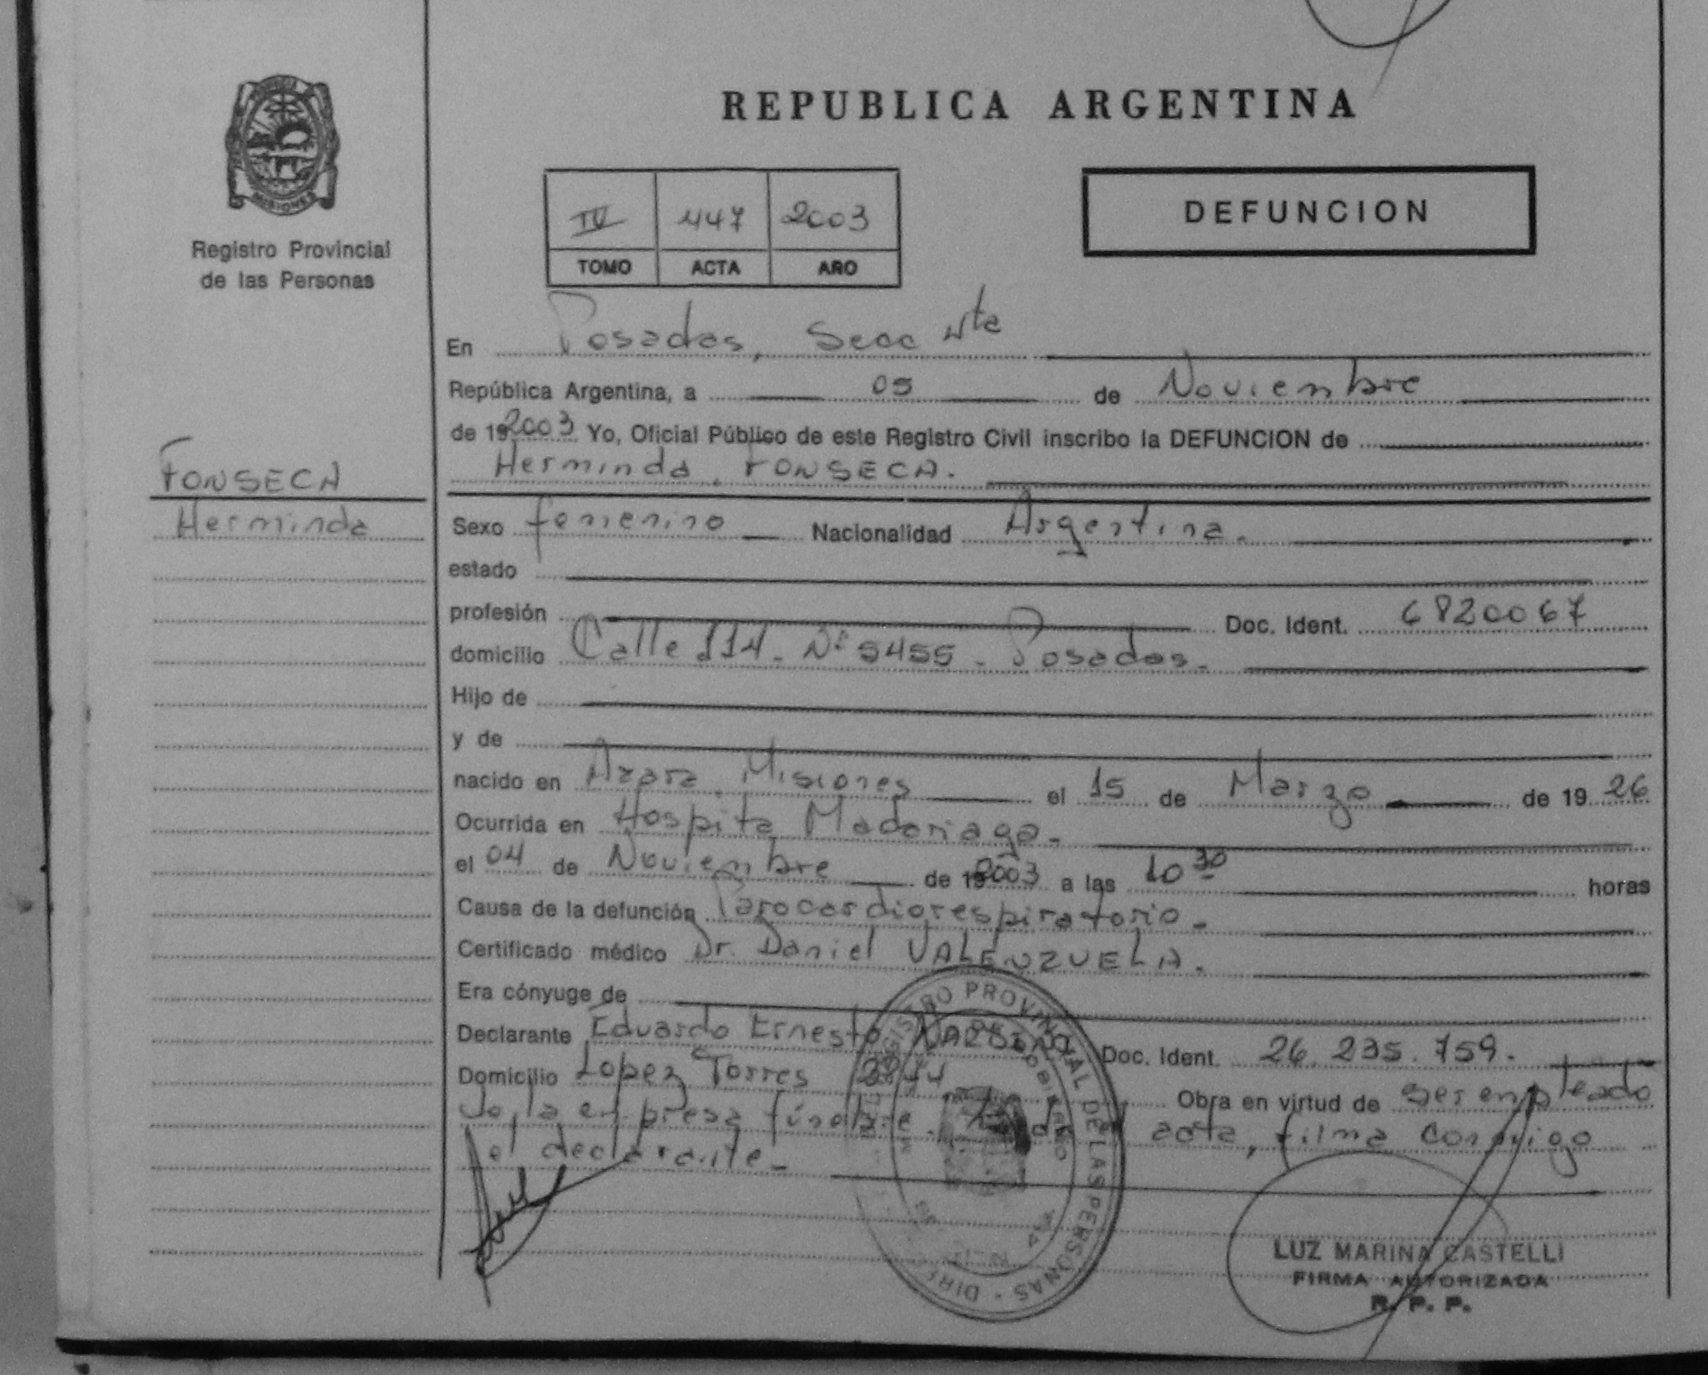 REPUBLICA ARGENTINA
MISIONES
Registro Provincial
de las Personas
IV 447 2003
TOMO ACTA AÑO
DEFUNCION
En Posadas, Secc 4ta
República Argentina, a 05 de Noviembre
de 192003 Yo, Oficial Público de este Registro Civil inscribo la DEFUNCION de
Herminda FONSECA.
FONSECA
Herminda
Sexo femenino Nacionalidad Argentina.
estado
profesión Doc. Ident. 6820067
domicilio Calle 114. Nº 5455 - Posadas.
Hijo de
y de
nacido en Azara Misiones el 15 de Marzo de 19 26
Ocurrida en Hospita Madariaga.
el 04 de Noviembre de 192003 a las 10 30 horas
Causa de la defunción Parocardiorespiratorio.
Certificado médico Dr. Daniel VALENZUELA.
Era cónyuge de
Declarante Eduardo Ernesto Doc. Ident. 26.235.759.
Domicilio Lopez Torres Obra en virtud de ser empleado
de la empresa fúnebre. acta, filma conmigo
el declarante.
REGISTRO PROVINCIAL DE LAS PERSONAS
LUZ MARINA CASTELLI
FIRMA AUTORIZADA
R. P. P.